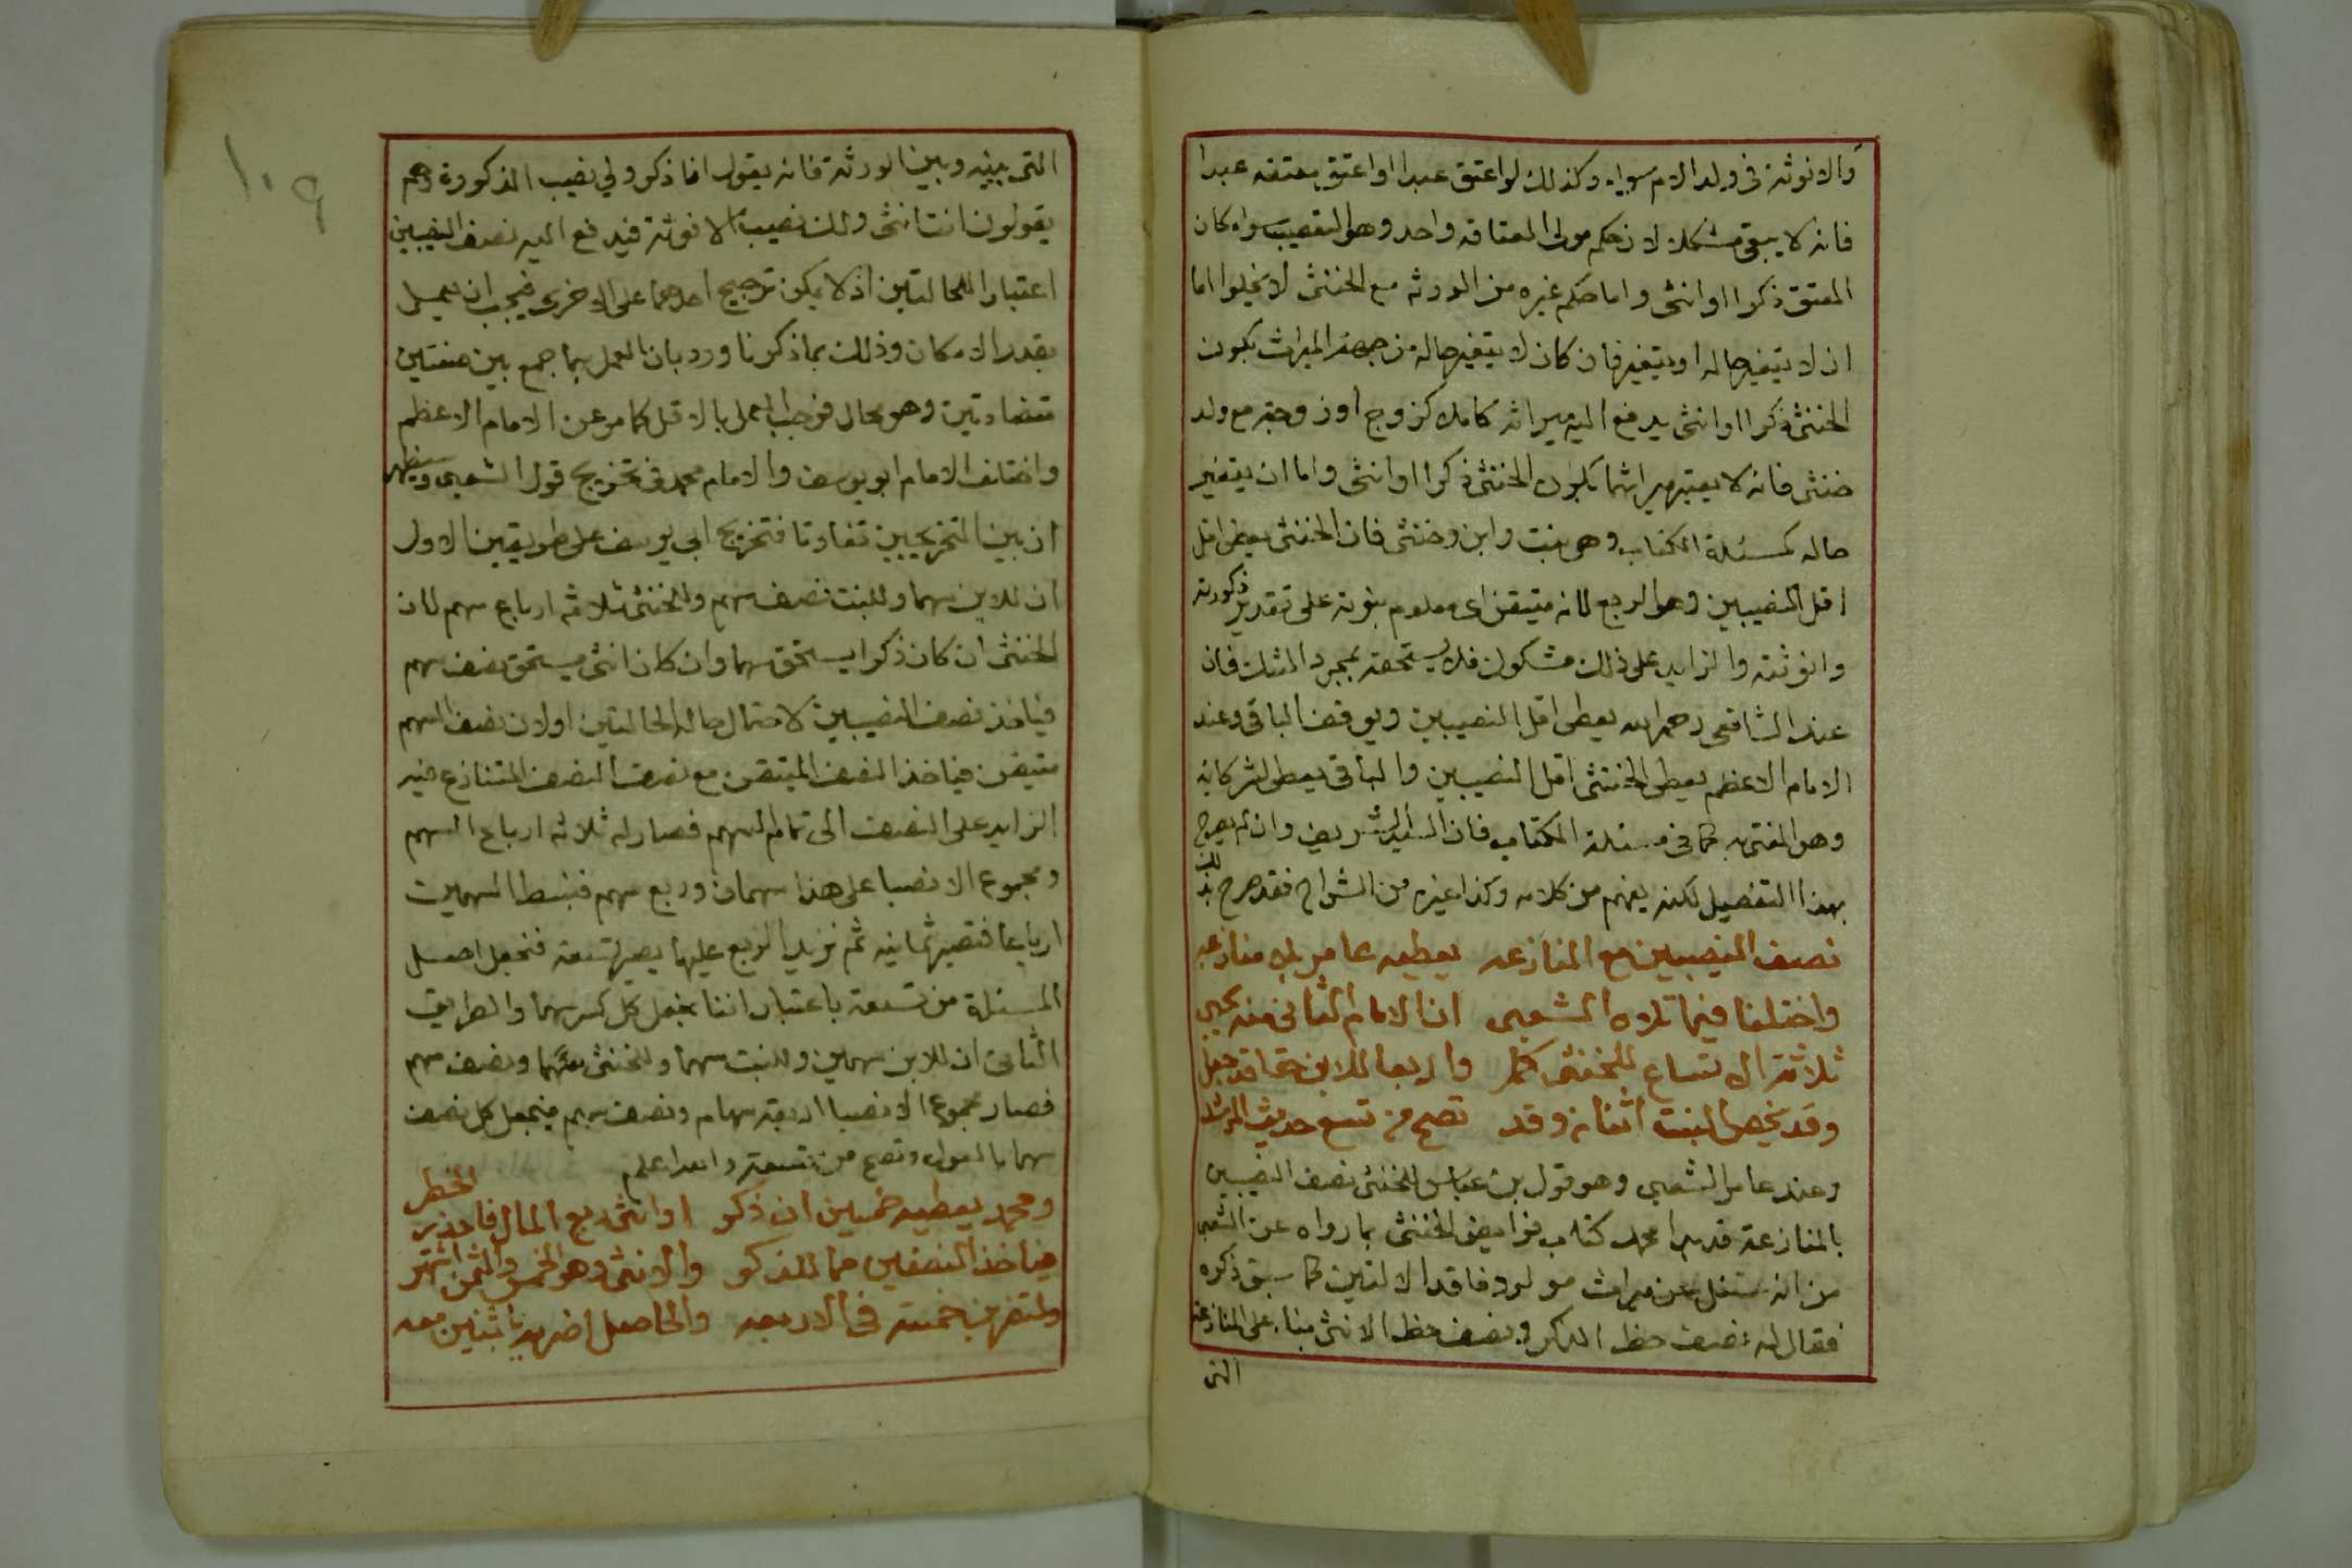 والانوثة فى ولد الام سواء وكذلك لو اعتق عبدا او اعتق معتقه عبدا
فانه لا يبقى مشكلا لان حكم مولى العتاقه واحد وهو التعصيب سواء كان
المعتق ذكرا او انثى واما حكم غيره من الورثه مع الخنثى لا يخلوا اما
ان لا يتغير حاله او يتغير فان كان لا يتغير حاله من جهة الميراث بكون
الخنثى ذكرا او انثى يدفع اليه ميراثه كاملا كزوج او زوجة مع ولد
خنثى فانه لا يعتبر ميراثهما بكون الخنثى ذكرا او انثى واما ان يتغير
حاله كمسئلة الكتاب وهى بنت وابن وخنثى فان الخنثى يعطى اقل
اقل النصيبين وهو الربع لانه متيقن اى معلوم ثبوته على تقدير ذكورته
وانوثته والزايد على ذلك مشكوك فلا يستحقه بمجرد الشك فان
عند الشافعى رحمه الله يعطى اقل النصيبين ويوقف الباقى وعند
الامام الاعظم يعطى الخنثى اقل النصيبين والباقى يعطى لشركائه
وهو المفتى به كما فى مسئلة الكتاب فان السيد الشريف وان لم يصرح
بهذا التفصيل لكنه يفهم من كلامه وكذا غيره من الشراح فقد صرح بذلك
نصف النصيبين مع المنازعه يعطيه عامر بلا منازعه
واختلفا فيما تلاه الشعبى انا الامام الثانى منه يجبى
ثلاثة الاتساع للخنثى كما والاربعا للابن حقا قد جعل
وقد يخص البنت اثنان وقد تصح من تسع حديث
وعند عامر الشعبى وهو قول بن عباس للخنثى نصف النصيبين
بالمنازعة قدسرا محمد كتاب فرايض الخنثى بما رواه عن الشعبى
من انه سئل عن ميراث مولود فاقد الالتين كما سبق ذكره
فقال له نصف حظ الذكر ونصف حظ الانثى بناء على المنازعة
التى
١٠٩
التى بينه وبين الورثة فانه يقول انا ذكر ولي نصيب الذكورة وهم
يقولون انت انثى ولك نصيب الانوثة فيدفع اليه نصف النصيبين
اعتبارا للحالتين اذ لا يمكن ترجيح احدهما على الاخرى فيجب ان يعمل
بقدر الامكان وذلك بما ذكرنا ورد بان العمل بهما جمع بين صفتين
متضادتين وهو محال فوجب العمل بالاقل كما مر عن الامام الاعظم
واختلف الامام ابو يوسف والامام محمد فى تخريج قول الشعبى وسيظهر
ان بين التخريجين تفاوتا فتخريج ابي يوسف على طريقين الاول
ان للابن سهما وللبنت نصف سهم وللخنثى ثلاثة ارباع سهم لان
الخنثى ان كان ذكرا يستحق سهما وان كان انثى يستحق نصف سهم
فياخذ نصف النصيبين لاحتمال حاله الحالتين اولان نصف السهم
متيقن فياخذ النصف المتيقن مع نصف النصف المتنازع فيه
الزايد على النصف الى تمام السهم فصار له ثلاثة ارباع السهم
ومجموع الانصبا على هذا سهمان وربع سهم فنبسط السهمين
ارباعا فتصير ثمانيه ثم نزيد الربع عليها يصير تسعة فنجعل اصل
المسئلة من تسعة باعتبار اننا نجعل كل كسر سهما والطريق
الثانى ان للابن سهمين وللبنت سهما وللخنثى سهما ونصف سهم
فصار مجموع الانصبا اربعة سهام ونصف سهم فنجعل كل نصف
سهما بالعول وتصح من تسعة والله اعلم
ومحمد يعطيه خمسين ان ذكر او انثى ربع المال فاحذر الخطر
فياخذ النصفين مما للذكر والانثى وهو الخمس والثمن اشتهر
ولتضربن خمسة فى الاربعه والحاصل اضربه باثنين معه